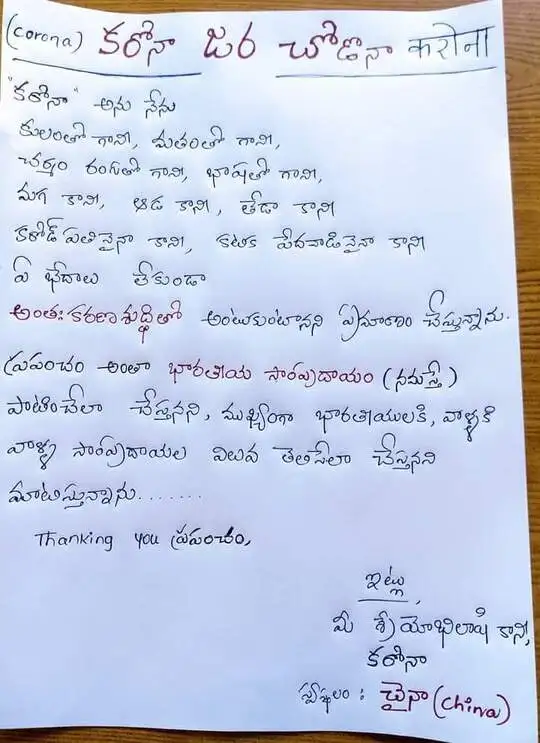 (corona) కరోనా జర చోణనా करोना
"కరోనా" అను నేను
కులంతో గానీ, మతంతో గానీ,
చర్మం రంగుతో గానీ, భాషతో గానీ,
మగ కానీ, ఆడ కానీ, తేడా కానీ
కరోడ్ పతినైనా కానీ, కటిక పేదవాడినైనా కానీ
ఏ భేదాలు లేకుండా
అంతఃకరణశుద్ధితో అంటుకుంటానని ప్రమాణం చేస్తున్నాను.
ప్రపంచం అంతా భారతీయ సాంప్రదాయం (నమస్తే)
పాటించేలా చేస్తనని, ముఖ్యంగా భారతీయులకి, వాళ్ళకి
వాళ్ళ సాంప్రదాయల విలువ తెలిసేలా చేస్తనని
మాటిస్తున్నాను.......
Thanking you ప్రపంచం,
ఇట్లు,
మీ శ్రేయోభిలాషి కాని,
కరోనా
స్వస్థలం : చైనా (China)